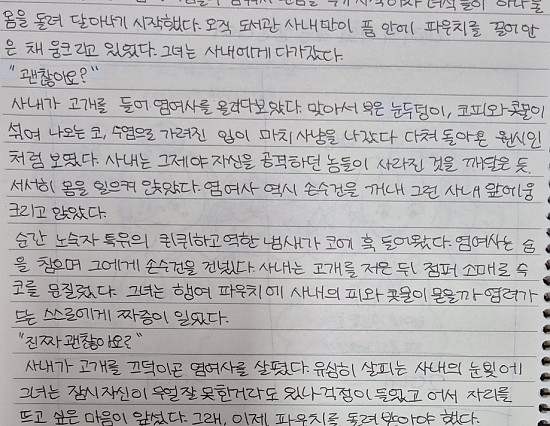 몸을 돌려 달아나기 시작했다. 오직 노숙자 사내만이 품 안에 파우치를 끌어안
은 채 웅크리고 있었다. 그녀는 사내에게 다가갔다.
"괜찮아요?"
사내가 고개를 들어 염여사를 올려다보았다. 맞아서 부은 눈두덩이, 코피와 콧물이
섞여 나오는 코, 수염으로 가려진 입이 마치 사냥을 나갔다 다쳐 돌아온 원시인
처럼 보였다. 사내는 그제야 자신을 공격하던 놈들이 사라진 것을 깨달은 듯
서서히 몸을 일으켜 앉았다. 염여사 역시 손수건을 꺼내 그런 사내 앞에 웅
크리고 앉았다.
순간 노숙자 특유의 퀴퀴하고 역한 냄새가 코에 훅 들어왔다. 염여사는 숨
을 참으며 그에게 손수건을 건넸다. 사내는 고개를 저은 뒤 점퍼 소매로 슥
코를 문질렀다. 그녀는 행여 파우치에 사내의 피와 콧물이 묻을까 염려가
드는 스스로에게 짜증이 일었다.
"진짜 괜찮아요?"
사내가 고개를 끄덕이곤 염여사를 살폈다. 유심히 살피는 사내의 눈빛에
그녀는 잠시 자신이 무얼 잘못한거라도 있나 걱정이 들었고 어서 자리를
뜨고 싶은 마음이 앞섰다. 그래, 이제 파우치를 돌려 받아야 했다.